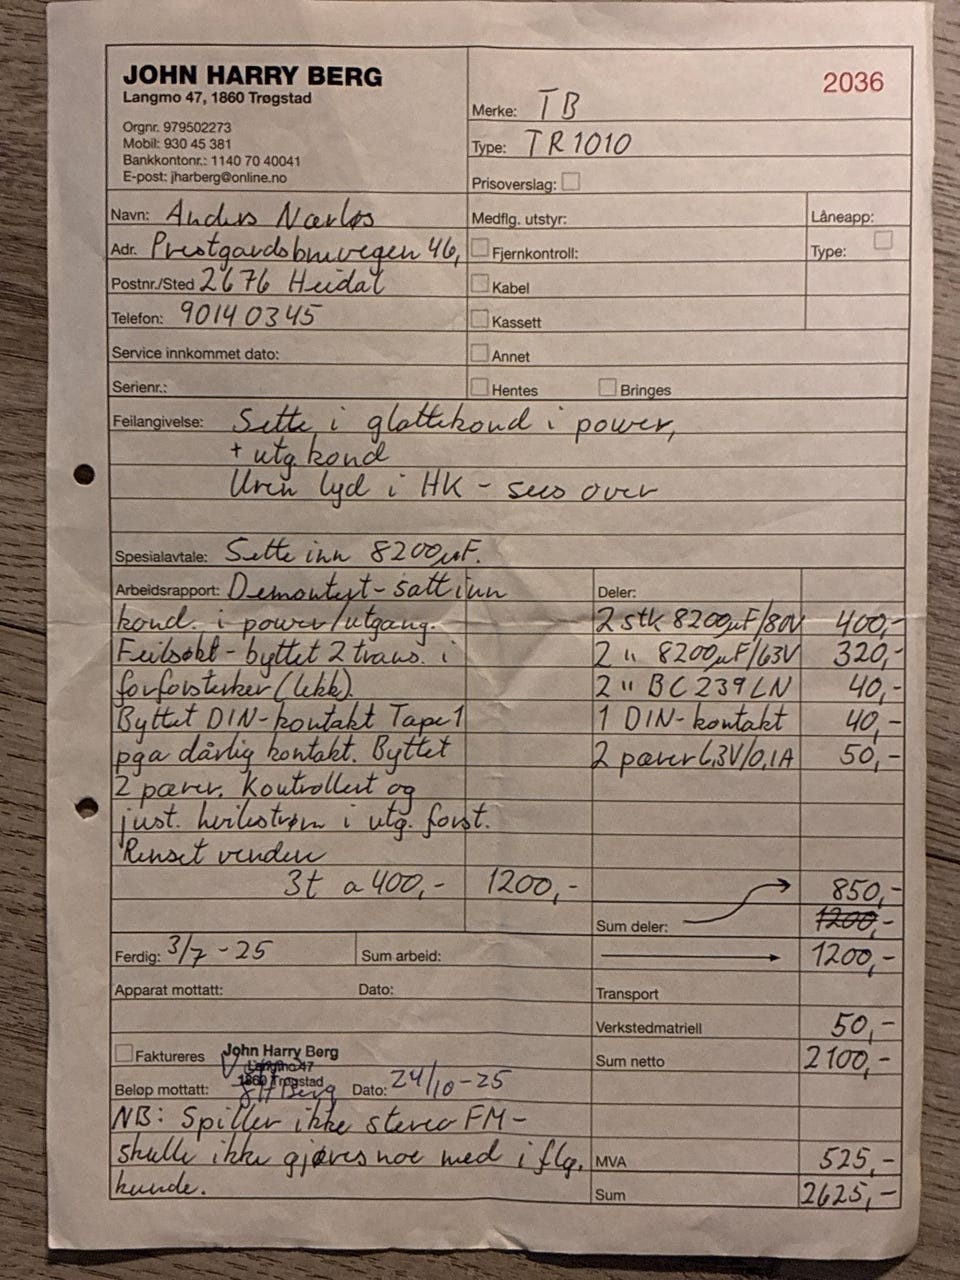 JOHN HARRY BERG
Langmo 47, 1860 Trøgstad
Orgnr. 979502273
Mobil: 930 45 381
Bankkontonr.: 1140 70 40041
E-post: jharberg@online.no
2036
Merke: TB
Type: TR1010
Prisoverslag:
Navn: Anders Nærløs
Medflg. utstyr:
Låneapp:
Adr. Prestgardsbruvegen 46,
Fjernkontroll:
Type:
Postnr./Sted 2676 Heidal
Kabel
Telefon: 90140345
Kassett
Service innkommet dato:
Annet
Serienr.:
Hentes
Bringes
Feilangivelse: Sette i glattekond i power,
+ utg kond
Uren lyd i HK - sees over
Spesialavtale: Sette inn 8200µF.
Arbeidsrapport: Demontert - satt inn
kond. i power/utgang.
Feilsøkt - byttet 2 trans. i
forforsterker (lekk).
Byttet DIN-kontakt Tape 1
pga dårlig kontakt. Byttet
2 pærer. Kontrollert og
just. hvilestrøm i utg. forst.
Renset vendere
3t a 400,- 1200,-
Deler:
2 stk 8200µF/80V 400,-
2 " 8200µF/63V 320,-
2 " BC239LN 40,-
1 DIN-kontakt 40,-
2 pærer 6,3V/0,1A 50,-
850,-
Sum deler: 1200,-
Ferdig: 3/7 - 25
Sum arbeid: 1200,-
Apparat mottatt:
Dato:
Transport
Verkstedmatriell 50,-
Faktureres
John Harry Berg
Langmo 47
1860 Trøgstad
Sum netto 2100,-
Beløp mottatt: JH Berg Dato: 24/10-25
NB: Spiller ikke stereo FM -
skulle ikke gjøres noe med iflg.
kunde.
MVA 525,-
Sum 2625,-